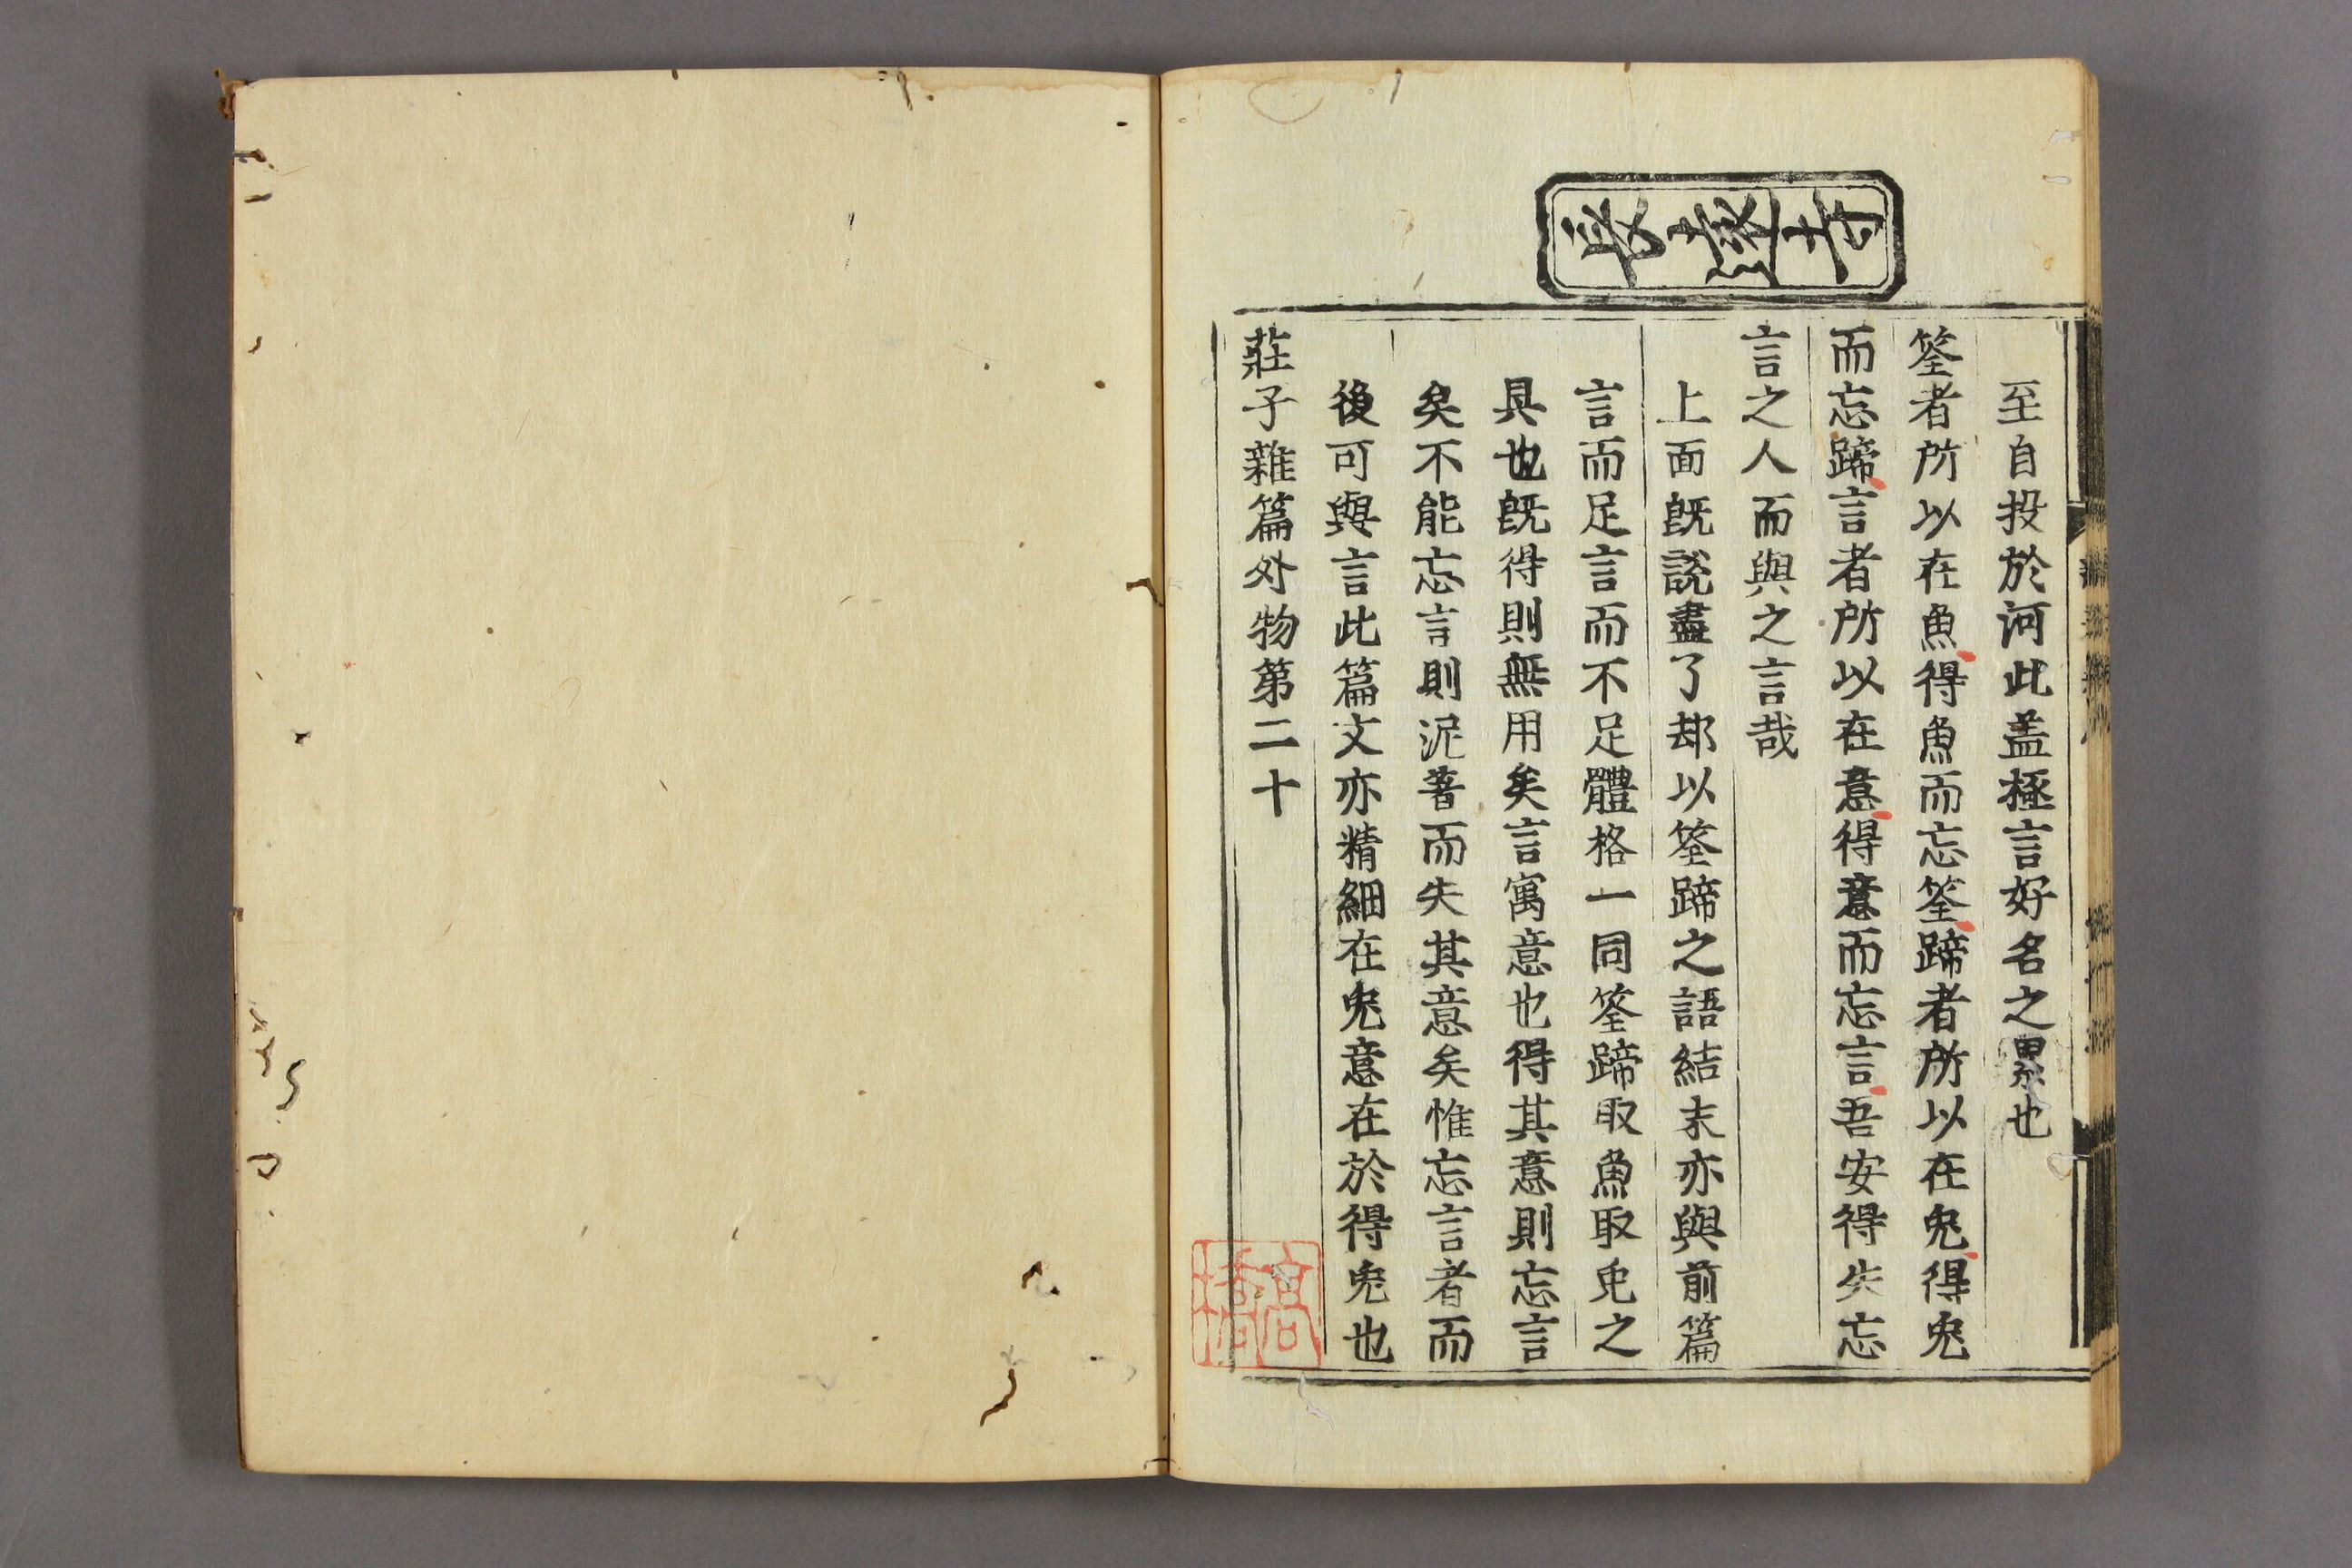 至自投於河此盖極言好名之累也
筌者所以在魚得魚而忘筌蹄者所以在兔得兔
而忘蹄言者所以在意得意而忘言吾安得失忘
言之人而與之言哉
上面旣說盡了却以筌蹄之語結末亦與前篇
言而足言而不足體格一同筌蹄取魚取兔之
具也旣得則無用矣言寓意也得其意則忘言
矣不能忘言則泥著而失其意矣惟忘言者而
後可與言此篇文亦精細在兔意在於得兔也
莊子雜篇外物第二十
高橋